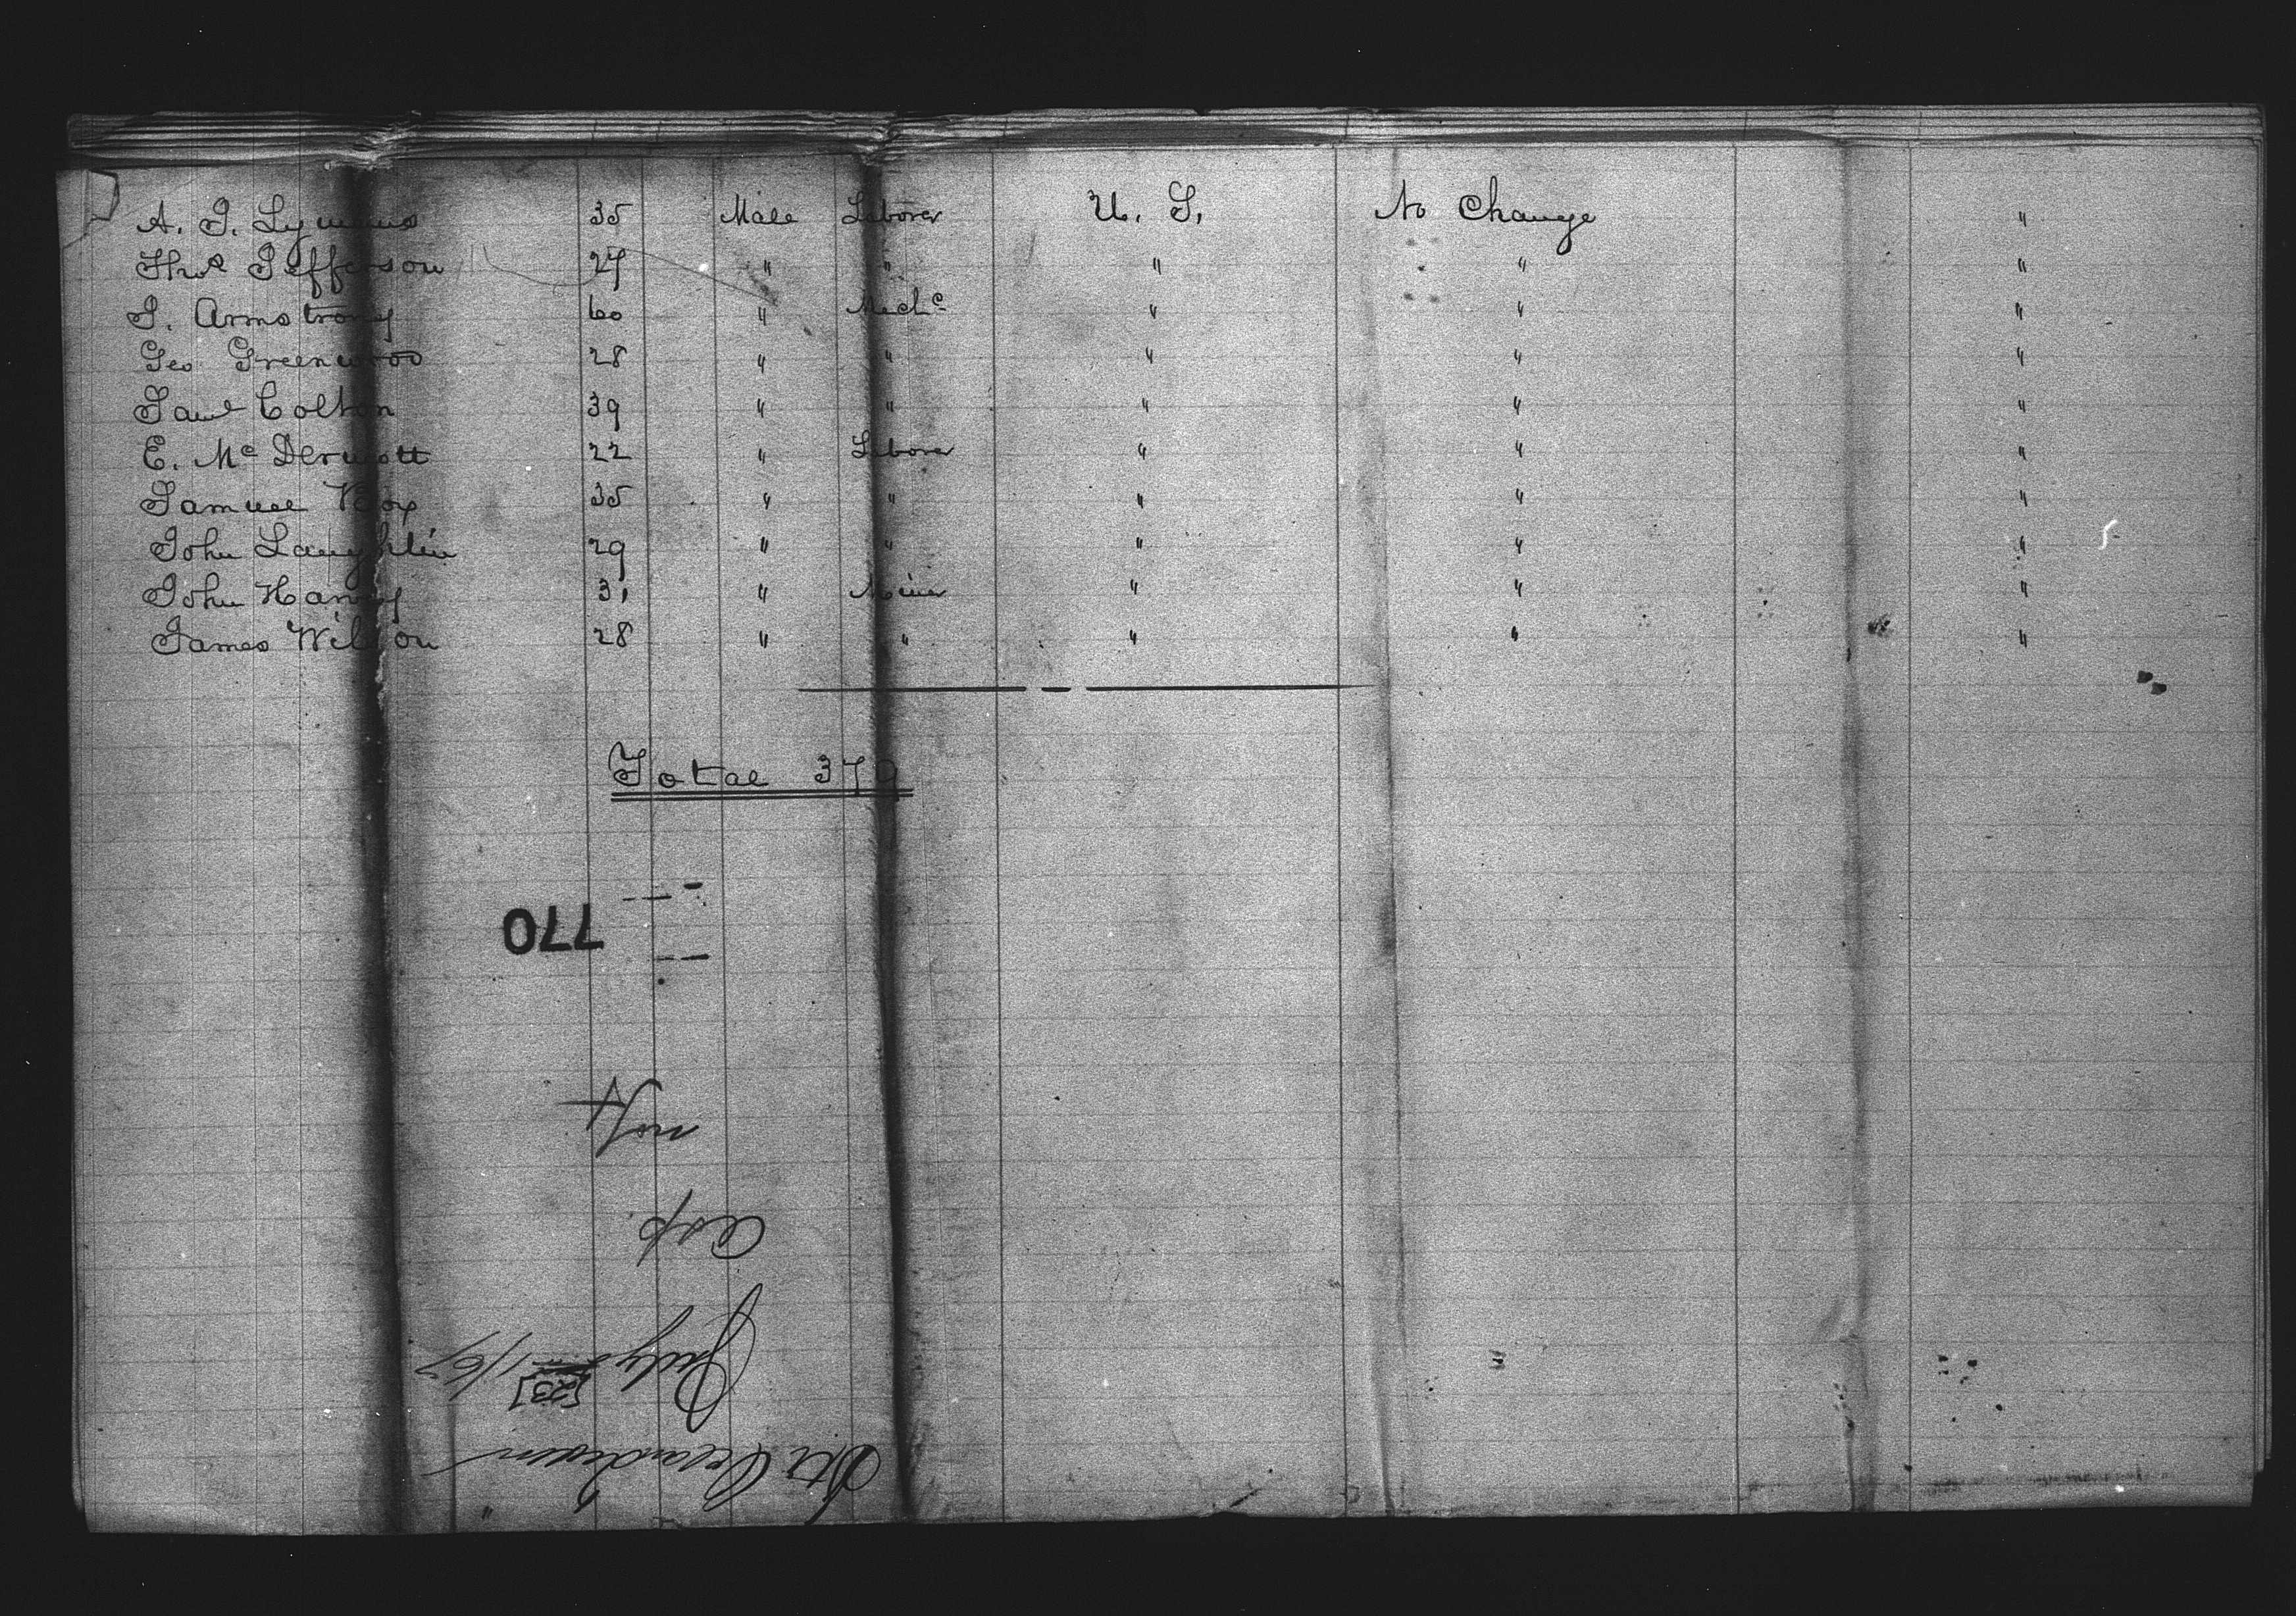 A. J. Lymans 35 Male Laborer U. S. No Change "
Thos Jefferson 27 " " " " "
J. Armstrong 60 " Mechc " " "
Geo Greenwood 28 " " " " "
Saml Colton 39 " " " " "
E. Mc Dermott 22 " Laborer " " "
Samuel 35 " " " " "
John Laughlin 29 " " " " "
John Harvey 31 " Miner " " "
James Wilson 28 " " " " "
Total 379
770
Asp.
July 1/67
[23]
Str